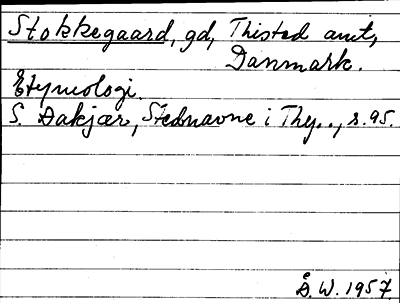 Stokkegaard, gd, Thisted amt,
Danmark.
Etymologi.
S. Dakjær, Stednavne i Thy.., s. 95.
Å. W. 1957.